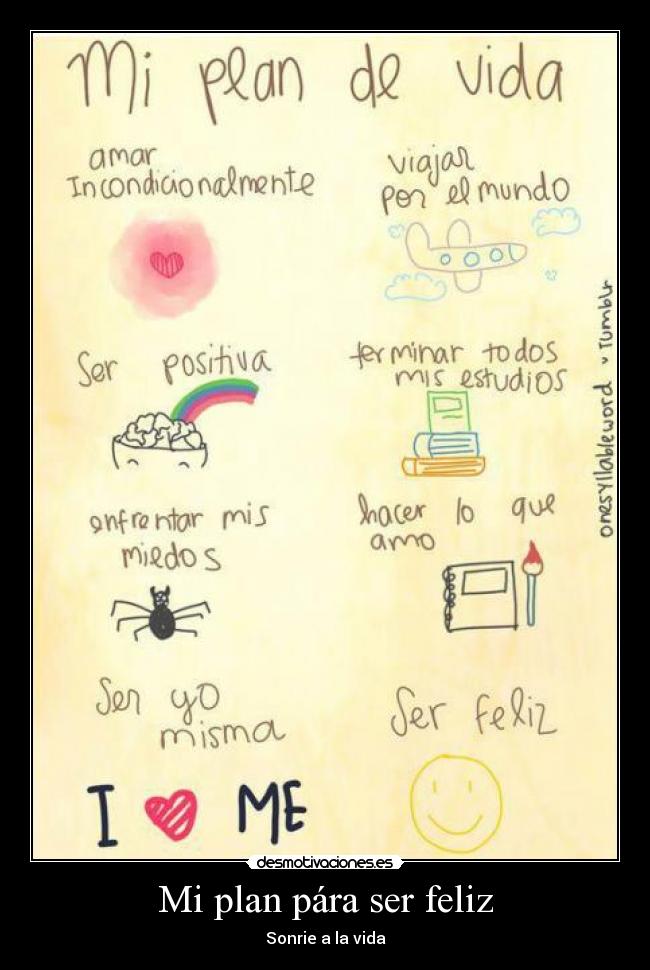 Mi plan de vida
amar
Incondicionalmente
viajar
por el mundo
Ser positiva
terminar todos
mis estudios
enfrentar mis
miedos
hacer lo que
amo
Ser yo
misma
Ser feliz
I ♥ ME
onesyllableword ♥ Tumblr
desmotivaciones.es
Mi plan pára ser feliz
Sonrie a la vida